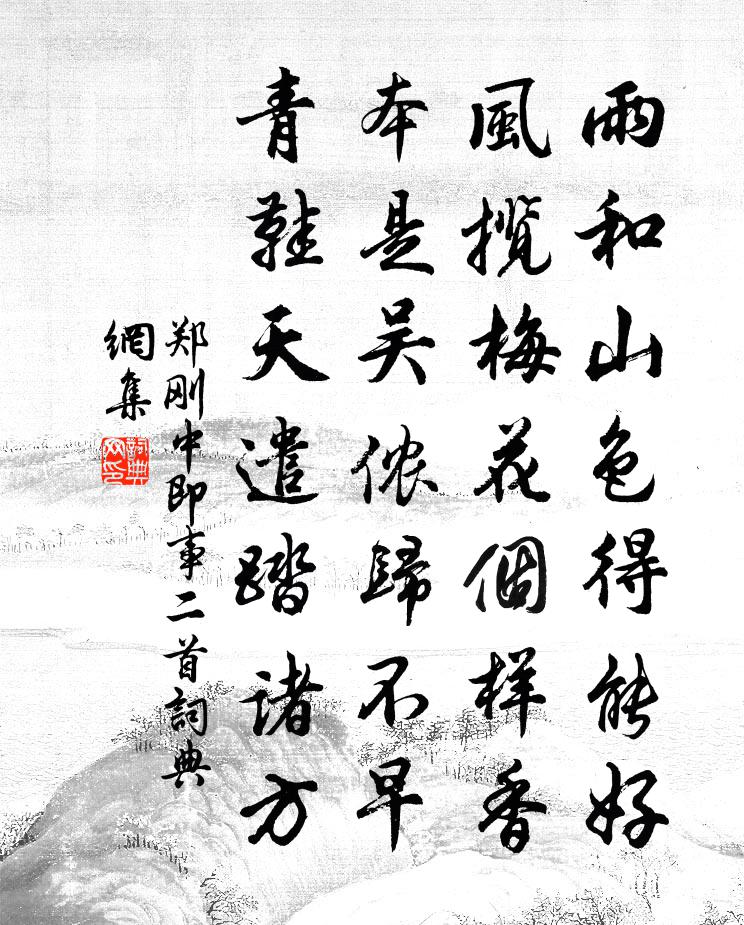 雨和山色得能好
風攬梅花個様香
本是吴儂歸不早
青鞋天遣踏诸方
郑刚中即事二首詞典
網集
詞典
网印